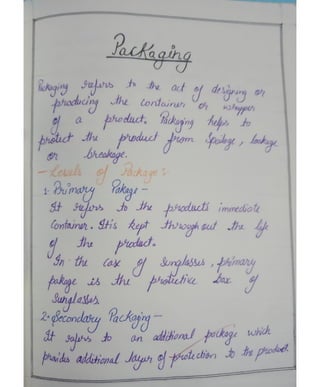 Packaging
Packaging refers to the act of designing or
producing the container or wrapper
of a product. Packaging helps to
protect the product from Spoilage, leakage
or breakage.
- Levels of Package :-
1- Primary Pakage -
It refers to the products immediate
Container. It is kept throughout the life
of the product.
In the case of Sunglasses, primary
pakage is the protective box of
Sunglasses
2- Secondary Packaging -
It refers to an additional package which
provides additional layer of protection to the product.